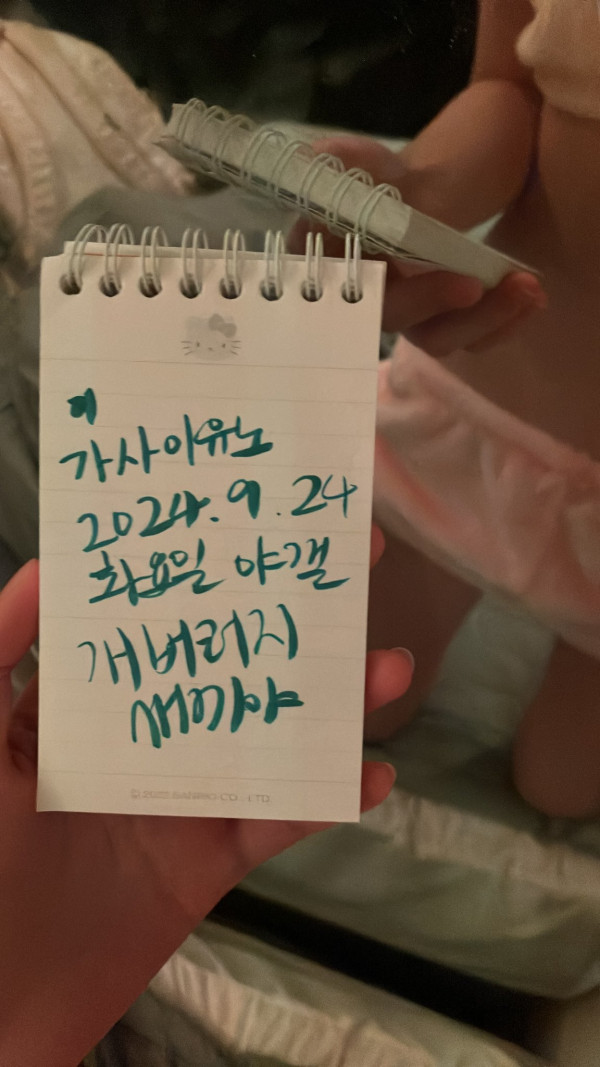 이
가사아유노
2024.9.24
화요일 야갤
개버러지
새끼야
© 2022 SANRIO CO., LTD.